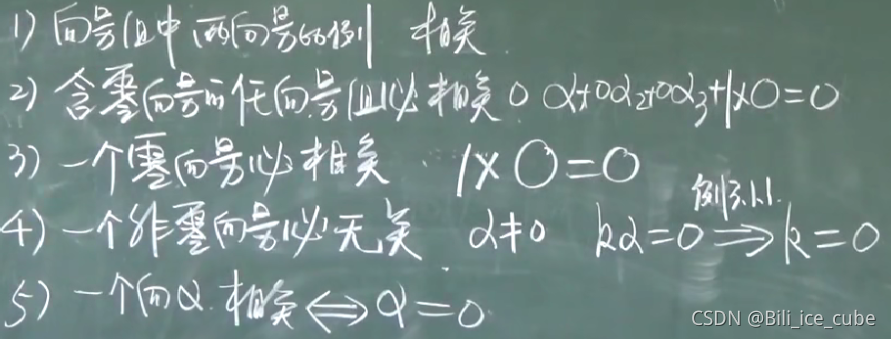 1) 向量组中两向量成比例 相关
2) 含零向量的任向量组必相关 0α₁+0α₂+0α₃+1×0=0
3) 一个零向量必相关 1×0=0
4) 一个非零向量必无关 α≠0 kα=0⟹k=0
例3.1.1.
5) 一个向α相关⟺α=0
CSDN @Bili_ice_cube